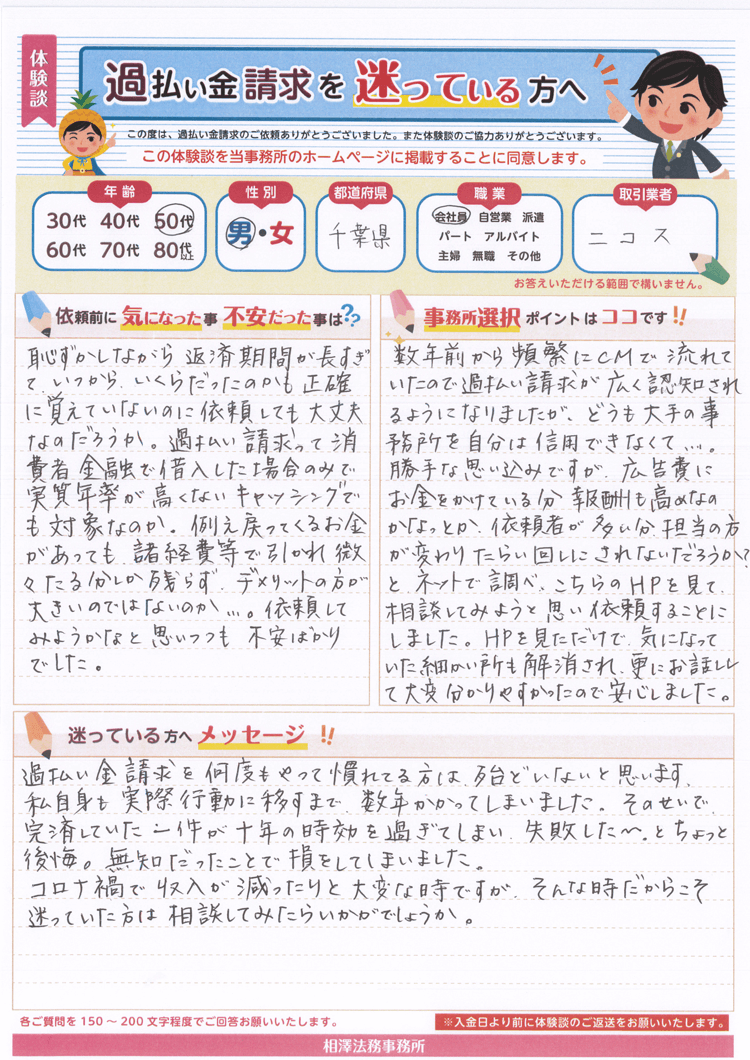 体験談
過払い金請求を迷っている方へ
この度は、過払い金請求のご依頼ありがとうございました。また体験談のご協力ありがとうございます。
この体験談を当事務所のホームページに掲載することに同意します。
年齢
30代 40代 50代
60代 70代 80代以上
性別
男・女
都道府県
千葉県
職業
会社員 自営業 派遣
パート アルバイト
主婦 無職 その他
取引業者
ニコス
お答えいただける範囲で構いません。
依頼前に気になった事 不安だった事は??
恥ずかしながら 返済期間が長すぎ
て、いつから、いくらだったのかも 正確
に覚えていないのに依頼しても大丈夫
なのだろうか。過払い請求って消
費者金融で借入した場合のみで
実質年率が高くないキャッシングで
も対象なのか。例え戻ってくるお金
があっても、諸経費等で引かれ微
々たる分しか残らず、デメリットの方が
大きいのではないのか…。依頼して
みようかなと思いつつも 不安ばかり
でした。
事務所選択ポイントはココです!!
数年前から頻繁にCMで流れて
いたので過払い請求が広く認知され
るようになりましたが、どうも大手の事
務所を自分は信用できなくて…。
勝手な思い込みですが、広告費に
お金をかけている分 報酬も高めなの
かなっとか、依頼者が多い分、担当の方
が変わりたらい回しにされないだろうか?
と、ネットで調べ、こちらのHPを見て、
相談してみようと思い依頼することに
しました。HPを見ただけで、気になって
いた細かい所も解消され、更にお話しし
て大変分かりやすかったので安心しました。
迷っている方へメッセージ!!
過払い金請求を何度もやって慣れてる方は、殆どいないと思います。
私自身も実際行動に移すまで、数年かかってしまいました。そのせいで、
完済していた一件が十年の時効を過ぎてしまい、失敗した〜。とちょっと
後悔。無知だったことで損をしてしまいました。
コロナ禍で収入が減ったりと大変な時ですが、そんな時だからこそ
迷っていた方は相談してみたらいかがでしょうか。
各ご質問を150〜200文字程度でご回答お願いいたします。
※入金日より前に体験談のご返送をお願いいたします。
相澤法務事務所